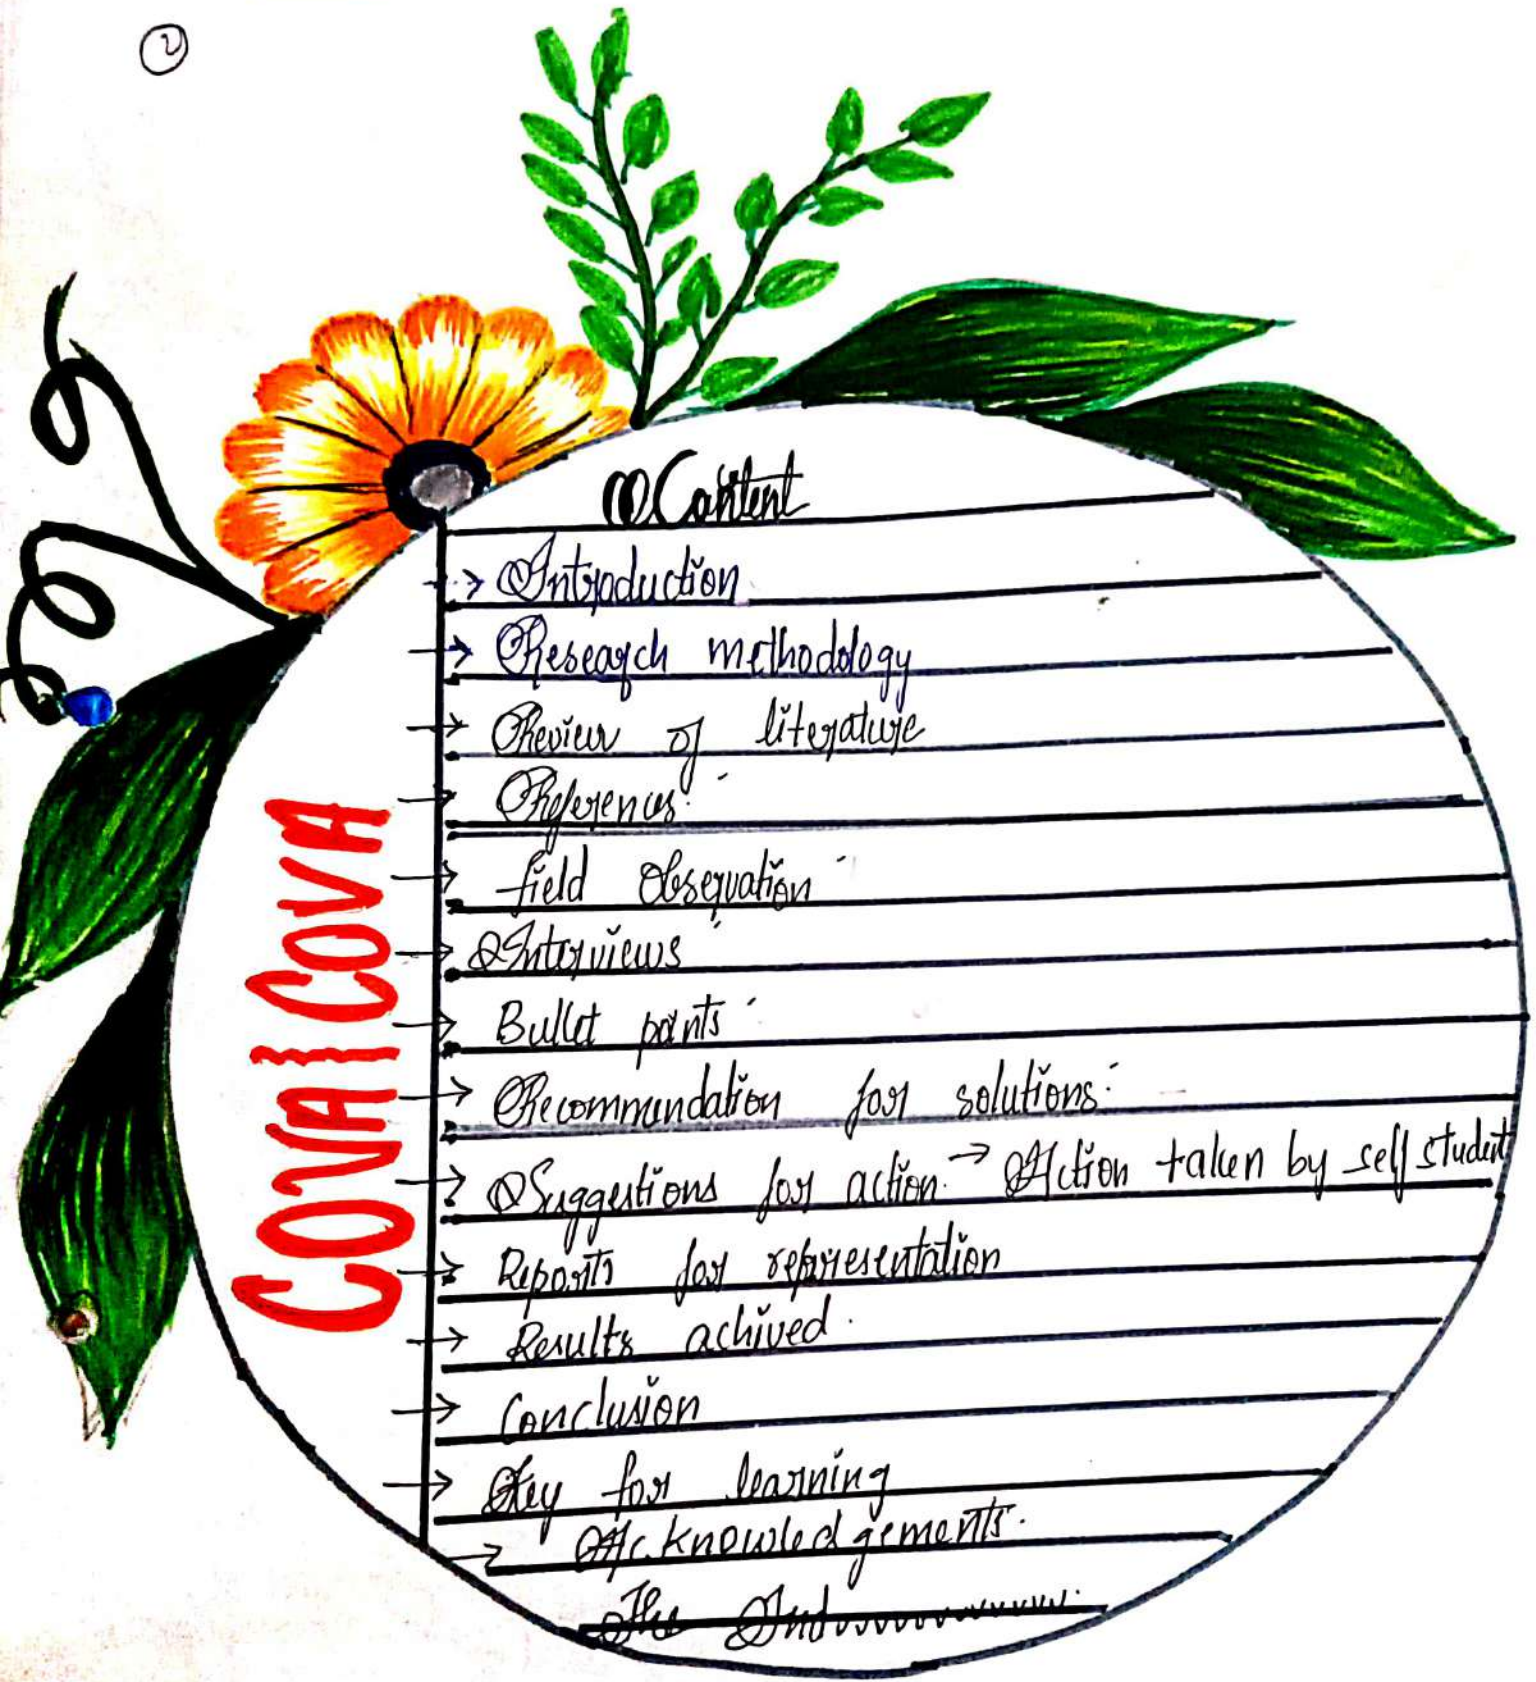 2
Content
→ Introduction
→ Research methodology
→ Review of literature
→ References
→ field Observation
→ Interviews
→ Bullet points
→ Recommendation for solutions:
→ Suggestions for action. → Action taken by self student
→ Reports for representation
→ Results achived.
→ Conclusion
→ Key for learning
→ Acknowledgements.
The End
COVAI COVA